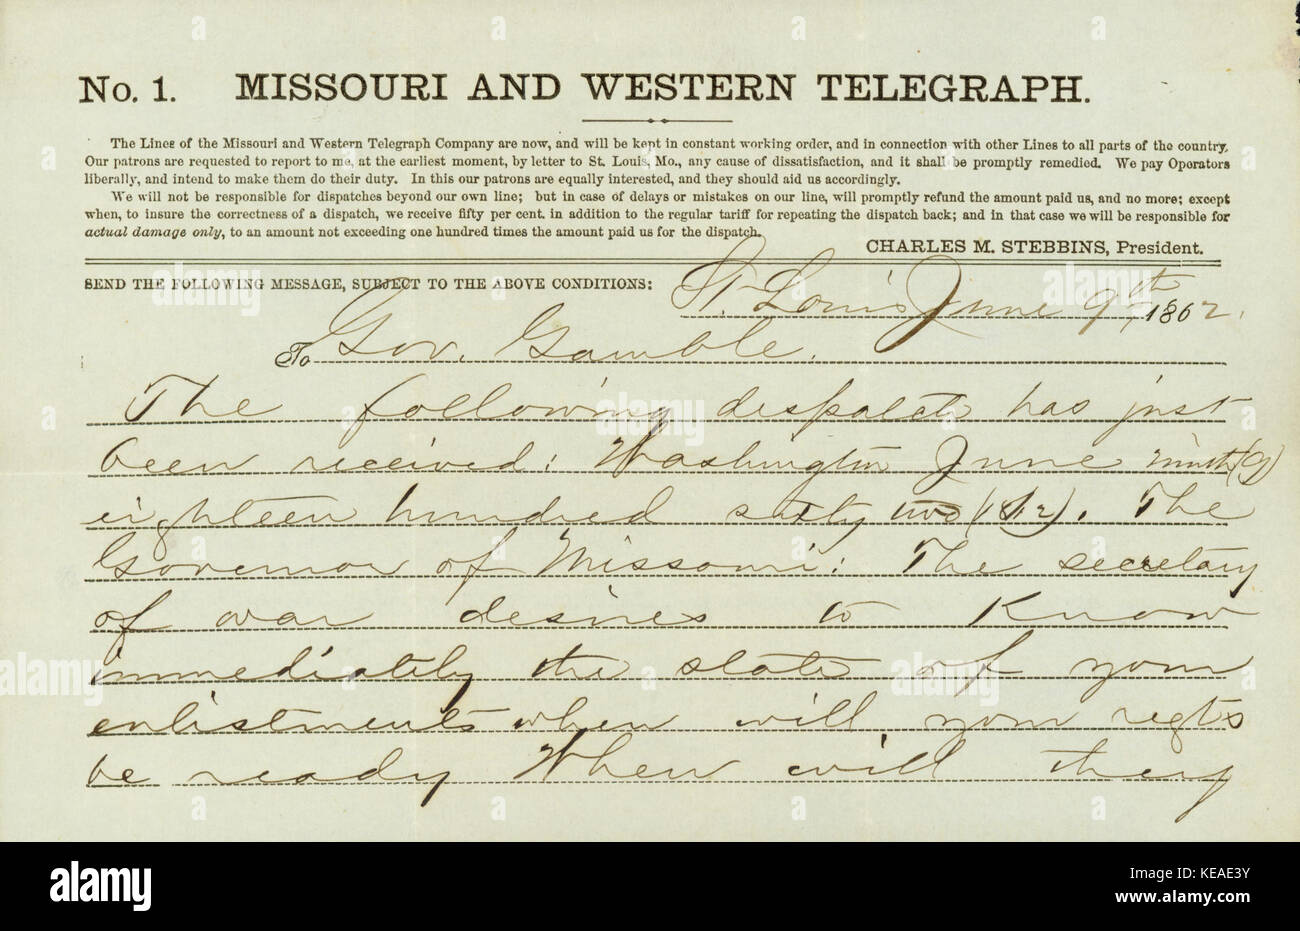 No. 1. MISSOURI AND WESTERN TELEGRAPH.
The Lines of the Missouri and Western Telegraph Company are now, and will be kept in constant working order, and in connection with other Lines to all parts of the country,
Our patrons are requested to report to me, at the earliest moment, by letter to St. Louis, Mo., any cause of dissatisfaction, and it shall be promptly remedied. We pay Operators
liberally, and intend to make them do their duty. In this our patrons are equally interested, and they should aid us accordingly.
We will not be responsible for dispatches beyond our own line; but in case of delays or mistakes on our line, will promptly refund the amount paid us, and no more; except
when, to insure the correctness of a dispatch, we receive fifty per cent. in addition to the regular tariff for repeating the dispatch back; and in that case we will be responsible for
actual damage only, to an amount not exceeding one hundred times the amount paid us for the dispatch.
CHARLES M. STEBBINS, President.
SEND THE FOLLOWING MESSAGE, SUBJECT TO THE ABOVE CONDITIONS:
St. Louis June 9th, 1862.
To Gov. Gamble.
The following despatch has just
been received: Washington June ninth (9)
eighteen hundred sixty two (1862). The
Governor of Missouri: The secretary
of war desires to know
immediately the state of your
enlistments when will your regts
be ready When will they
alamy
Image ID: KEAE3Y
www.alamy.com